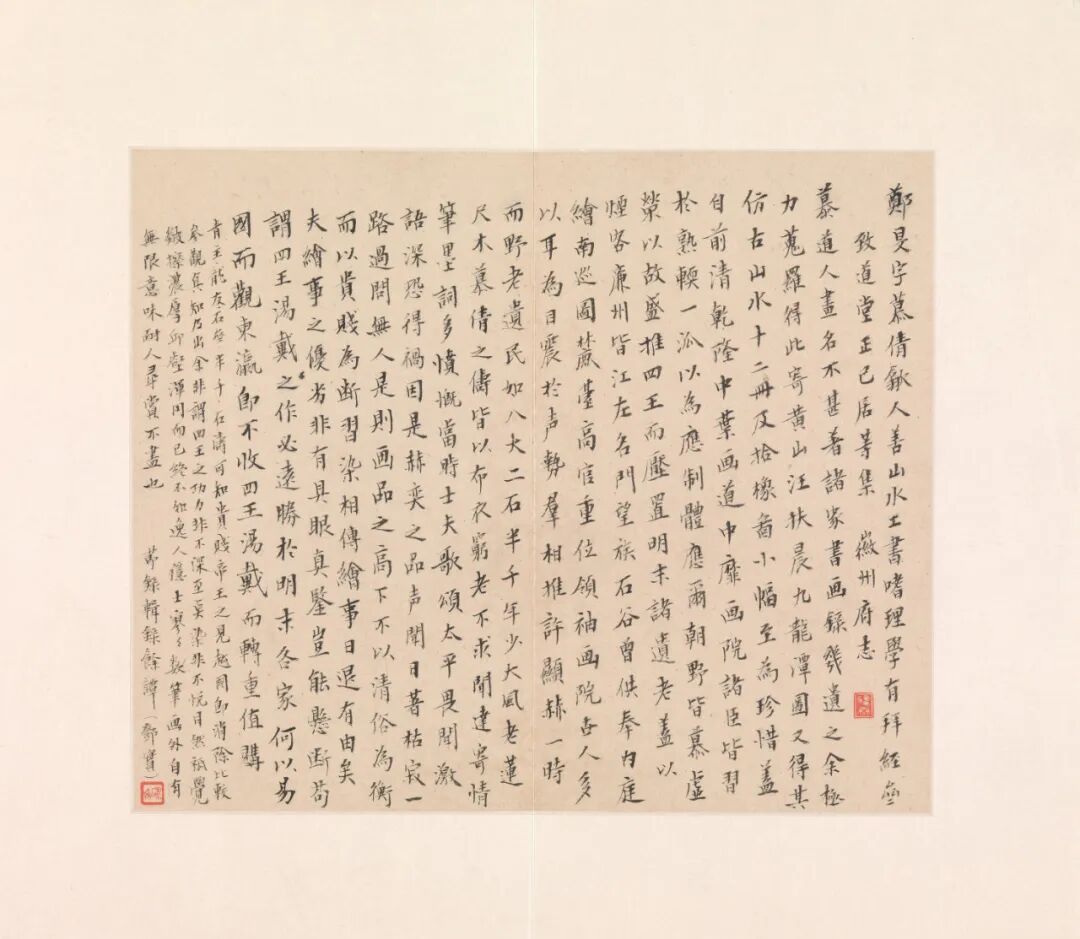 鄭旻字慕倩歙人善山水工書嗜理學有拜經齋
致道堂正己居等集 徽州府志
慕道人畫名不甚著諸家書画錄幾遺之余極
力蒐羅得此寄黃山汪扶晨九龍潭圖又得其
仿古山水十二冊及拾橡圖小幅至為珍惜蓋
自前清乾隆中葉画道中靡画院諸臣皆習
於熟輭一派以為應制體應爾朝野皆慕虛
榮以故盛推四王而壓置明末諸遺老蓋以
煙客廉州皆江左名門望族石谷曾供奉内庭
繪南巡圖麓臺高官重位領袖画院吾人多
以耳為目震於声勢羣相推許顯赫一時
而野老遺民如八大二石半千年少大風老蓮
尺木慕倩之儔皆以布衣窮老不求聞達寄情
筆墨詞多憤慨當時士夫歌頌太平畏聞激
語深恐得禍因是赫奕之品声聞日著枯寂一
路過問無人是則画品之高下不以清俗為衡
而以貴賤為断習染相傳繪事日退有由矣
夫繪事之優劣非有具眼真鑒豈能懸断苟
謂四王湯戴之作必遠勝於明末各家何以易
國而觀東瀛即不收四王湯戴而轉重值購
青主龍友石谿半千石濤可知貴賤帝王之見越國即消除比較
參觀真知乃出余非謂四王之功力非不深至奐染非不悅目然祇覺
緻擦濃厚邱壑渾同而已終不如逸人隱士寥々數筆画外自有
無限意味耐人尋賞不盡也 節錄輯錄餘譚(鄧實)